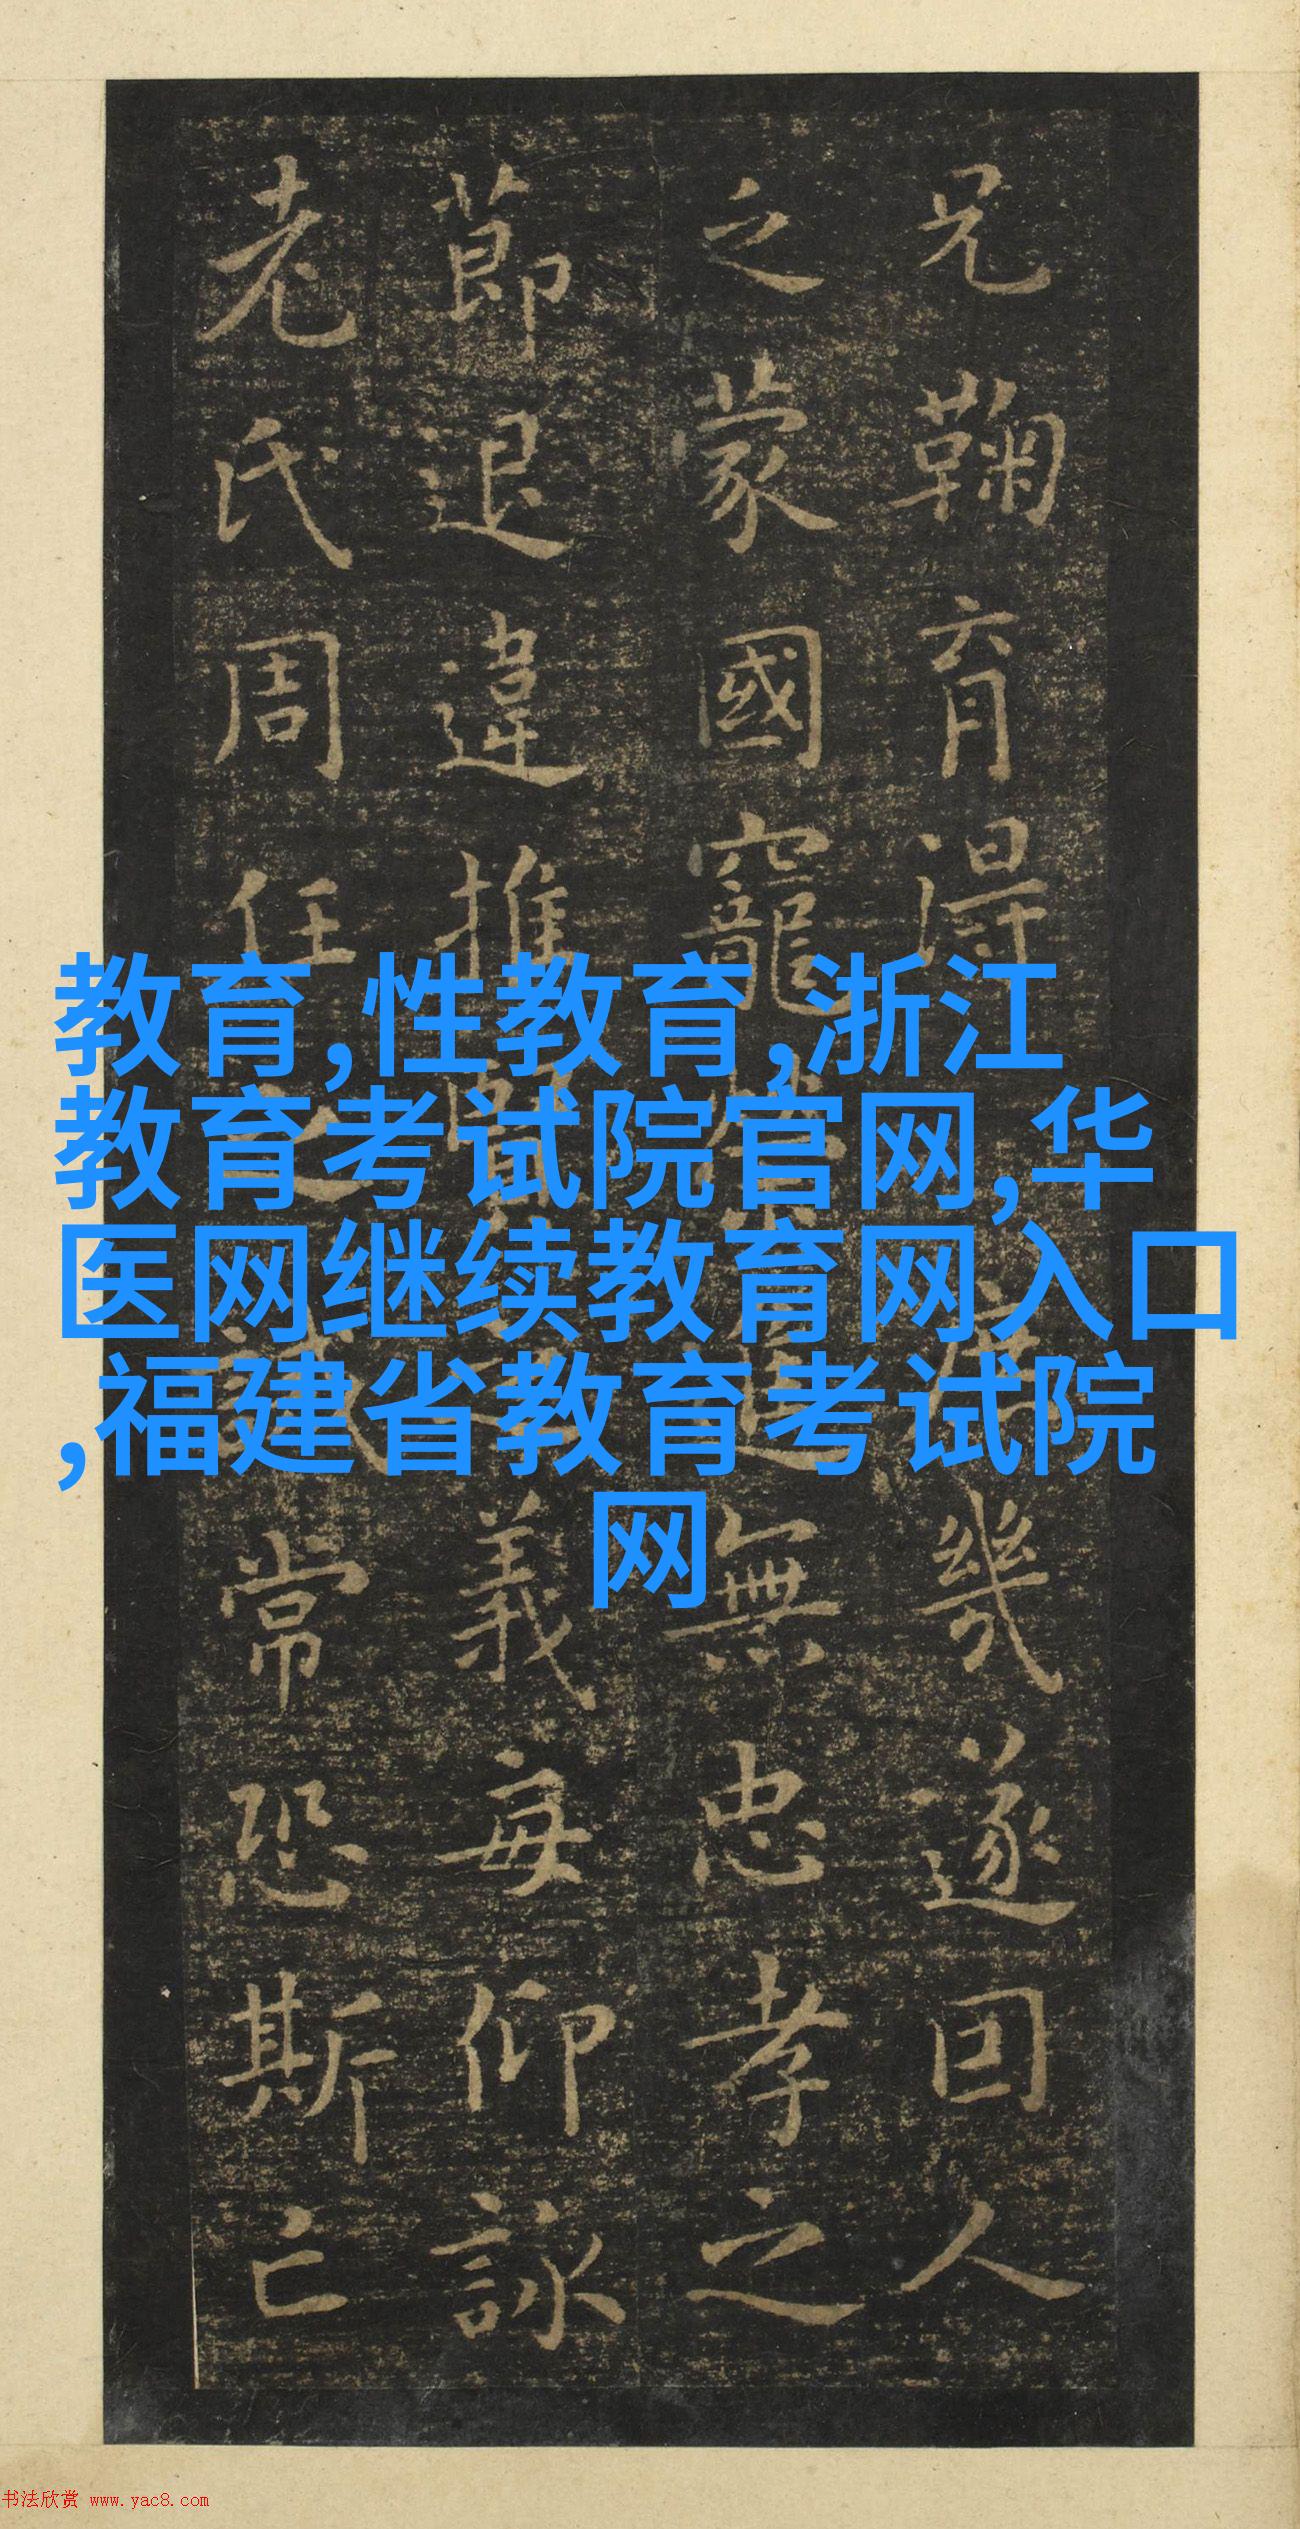 兄鞠育得庶幾遂因人
之蒙國寵進無忠孝之
莭退違推賢之義每仰詠
老氏周任之誡常恐斯亡
教育,性教育,浙江
教育考试院官网,华
医网继续教育网入口
,福建省教育考试院
网
书法欣赏 www.yac8.com